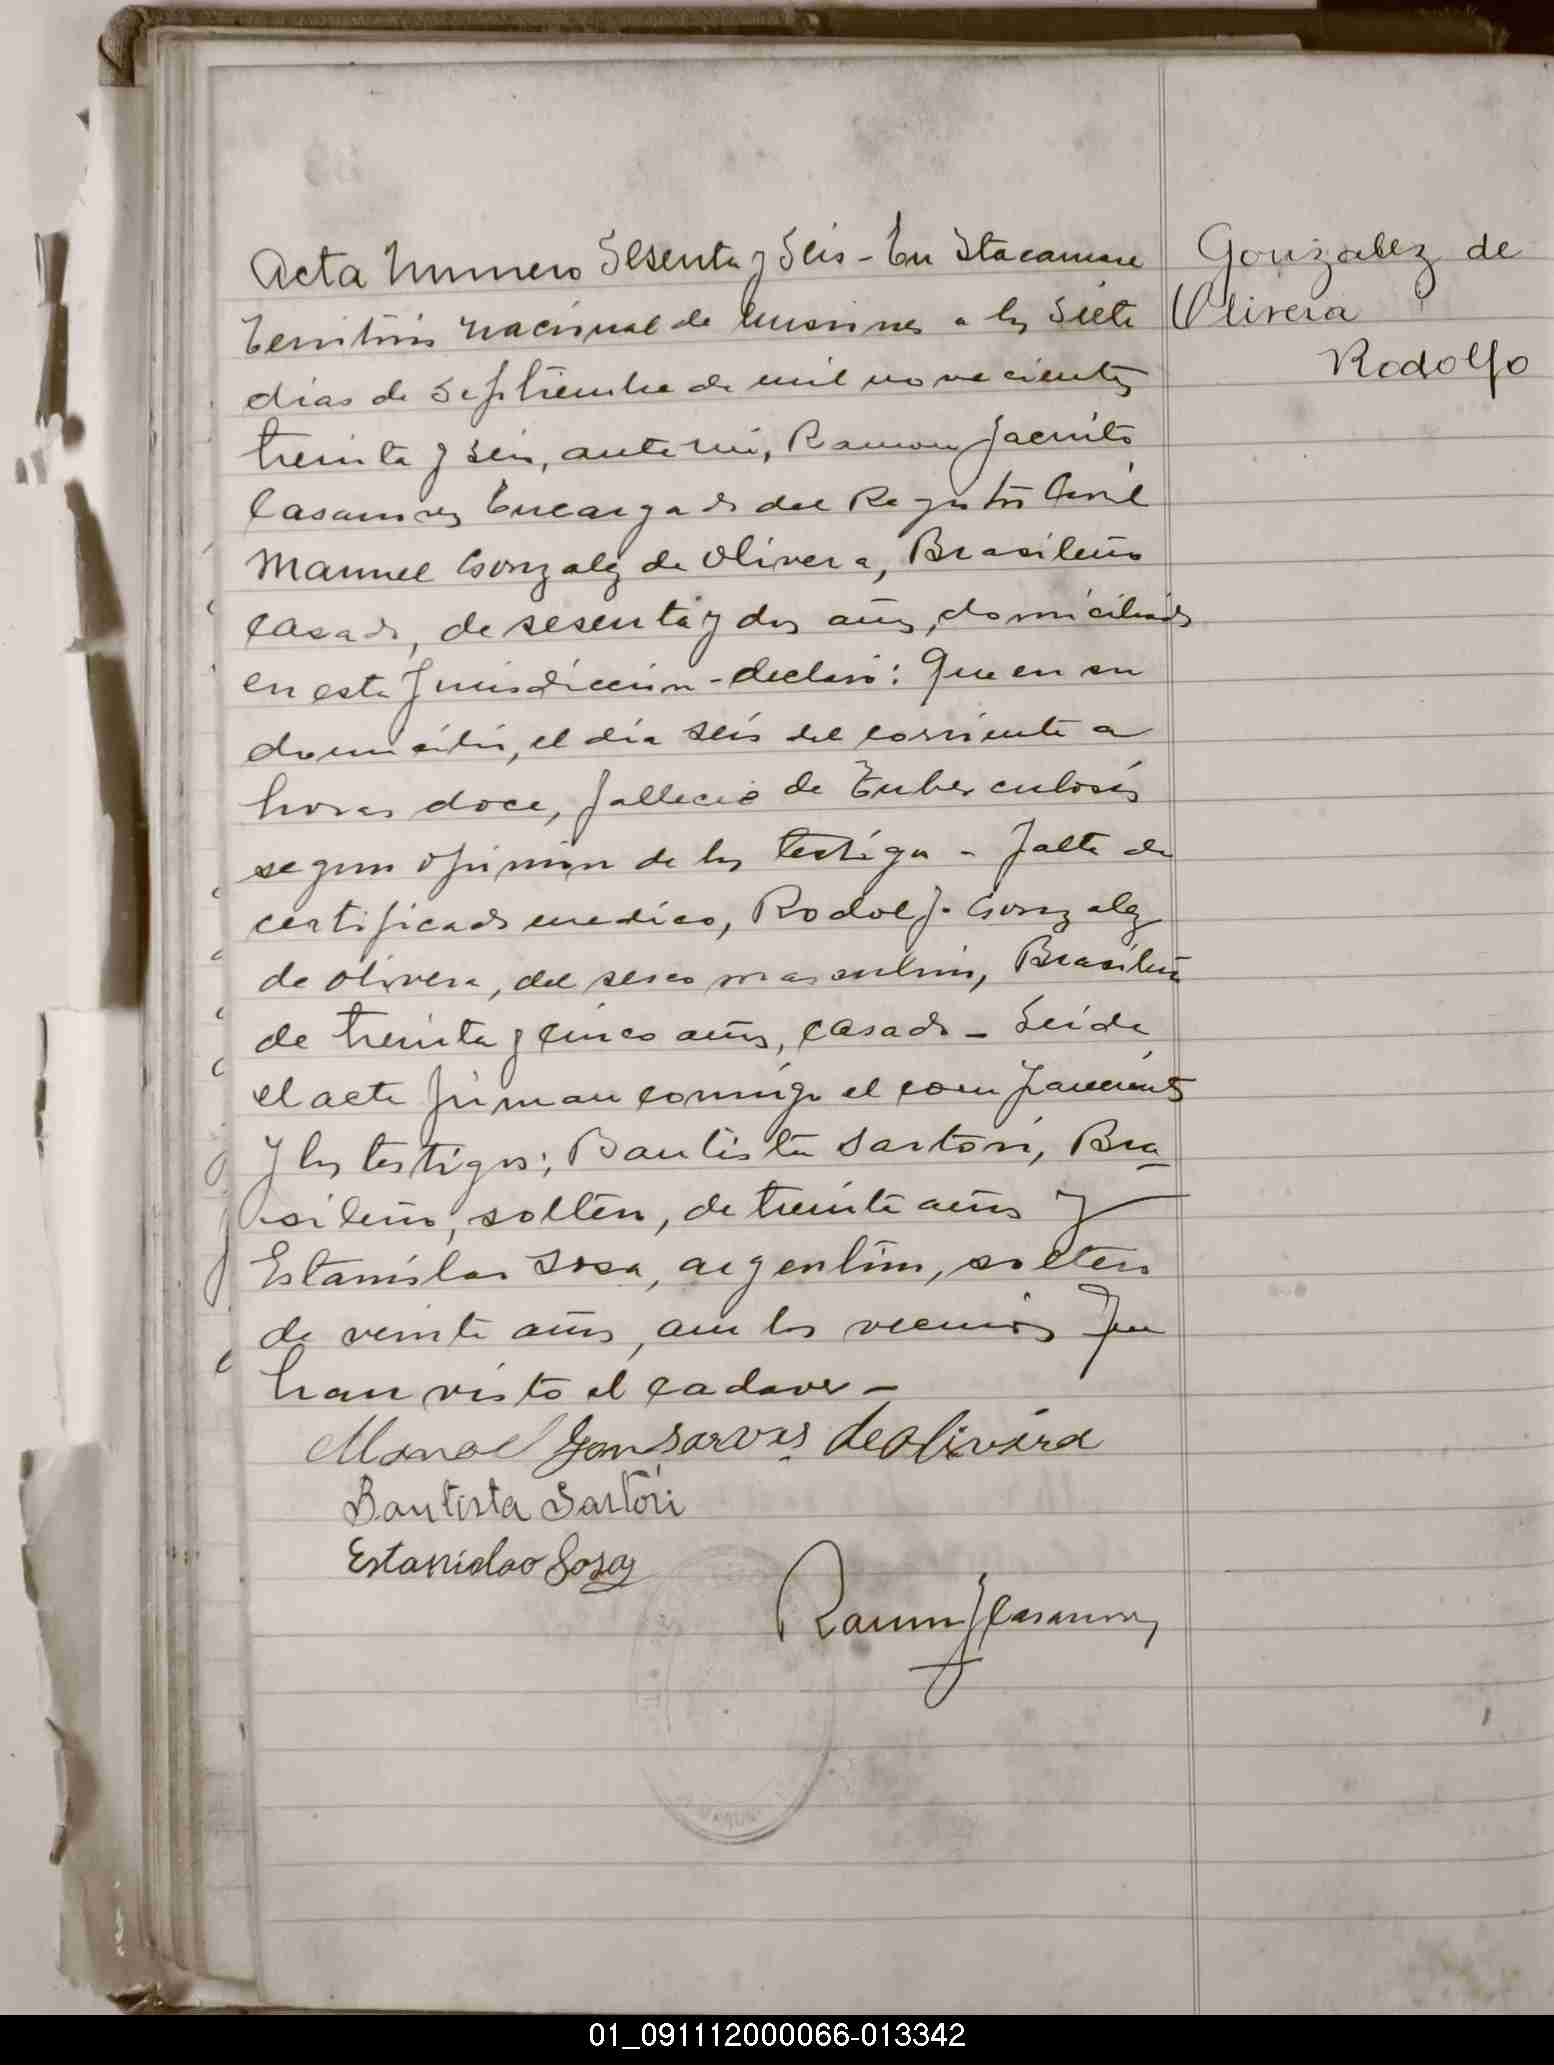 Acta Numero Sesenta y Seis - En Itacaruare
Territorio Nacional de Misiones a los Siete
dias de Septiembre de mil novecientos
treinta y seis, ante mi, Ramon Jacinto
Casamores Encargado del Registro Civil
Manuel Gonzalez de Olivera, Brasileño
casado, de sesenta y dos años, domiciliado
en esta Jurisdiccion - declaró: Que en su
domicilio, el dia seis del corriente a
horas doce, fallecio de Tuberculosis
segun opinion de los testigos - falta de
certificado medico, Rodolfo Gonzalez
de Olivera, del sexo masculino, Brasileño
de treinta y cinco años, casado - Leida
el acta firman conmigo el compareciente
y los testigos; Bautista Sartori, Bra-
sileño, soltero, de treinta años y
Estanislao Sosa, argentino, soltero
de veinte años, ambos vecinos que
han visto el cadaver -
Manoel Gonsarves de olivera
Bautista Sartori
Estanislao Sosa
Ramon J Casamores
Gonzalez de
Olivera
Rodolfo
01_091112000066-013342